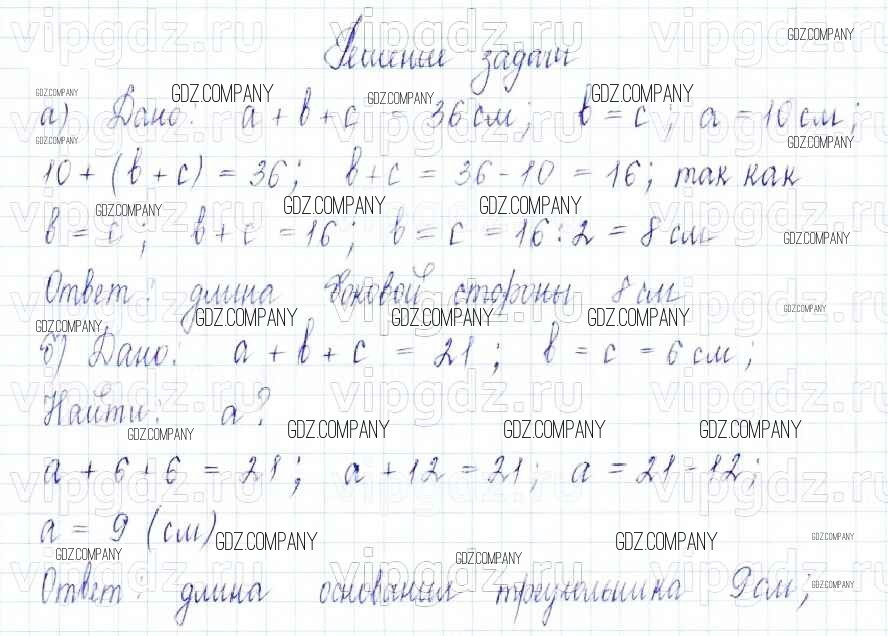 Решение задачи
а) Дано: a + b + c = 36 см; b = c; a = 10 см;
10 + (b + c) = 36; b + c = 36 - 10 = 16; так как
b = c; b + c = 16; b = c = 16 : 2 = 8 см
Ответ: длина боковой стороны 8 см
б) Дано: a + b + c = 21; b = c = 6 см;
Найти: a?
a + 6 + 6 = 21; a + 12 = 21; a = 21 - 12;
a = 9 (см)
Ответ: длина основания треугольника 9 см;